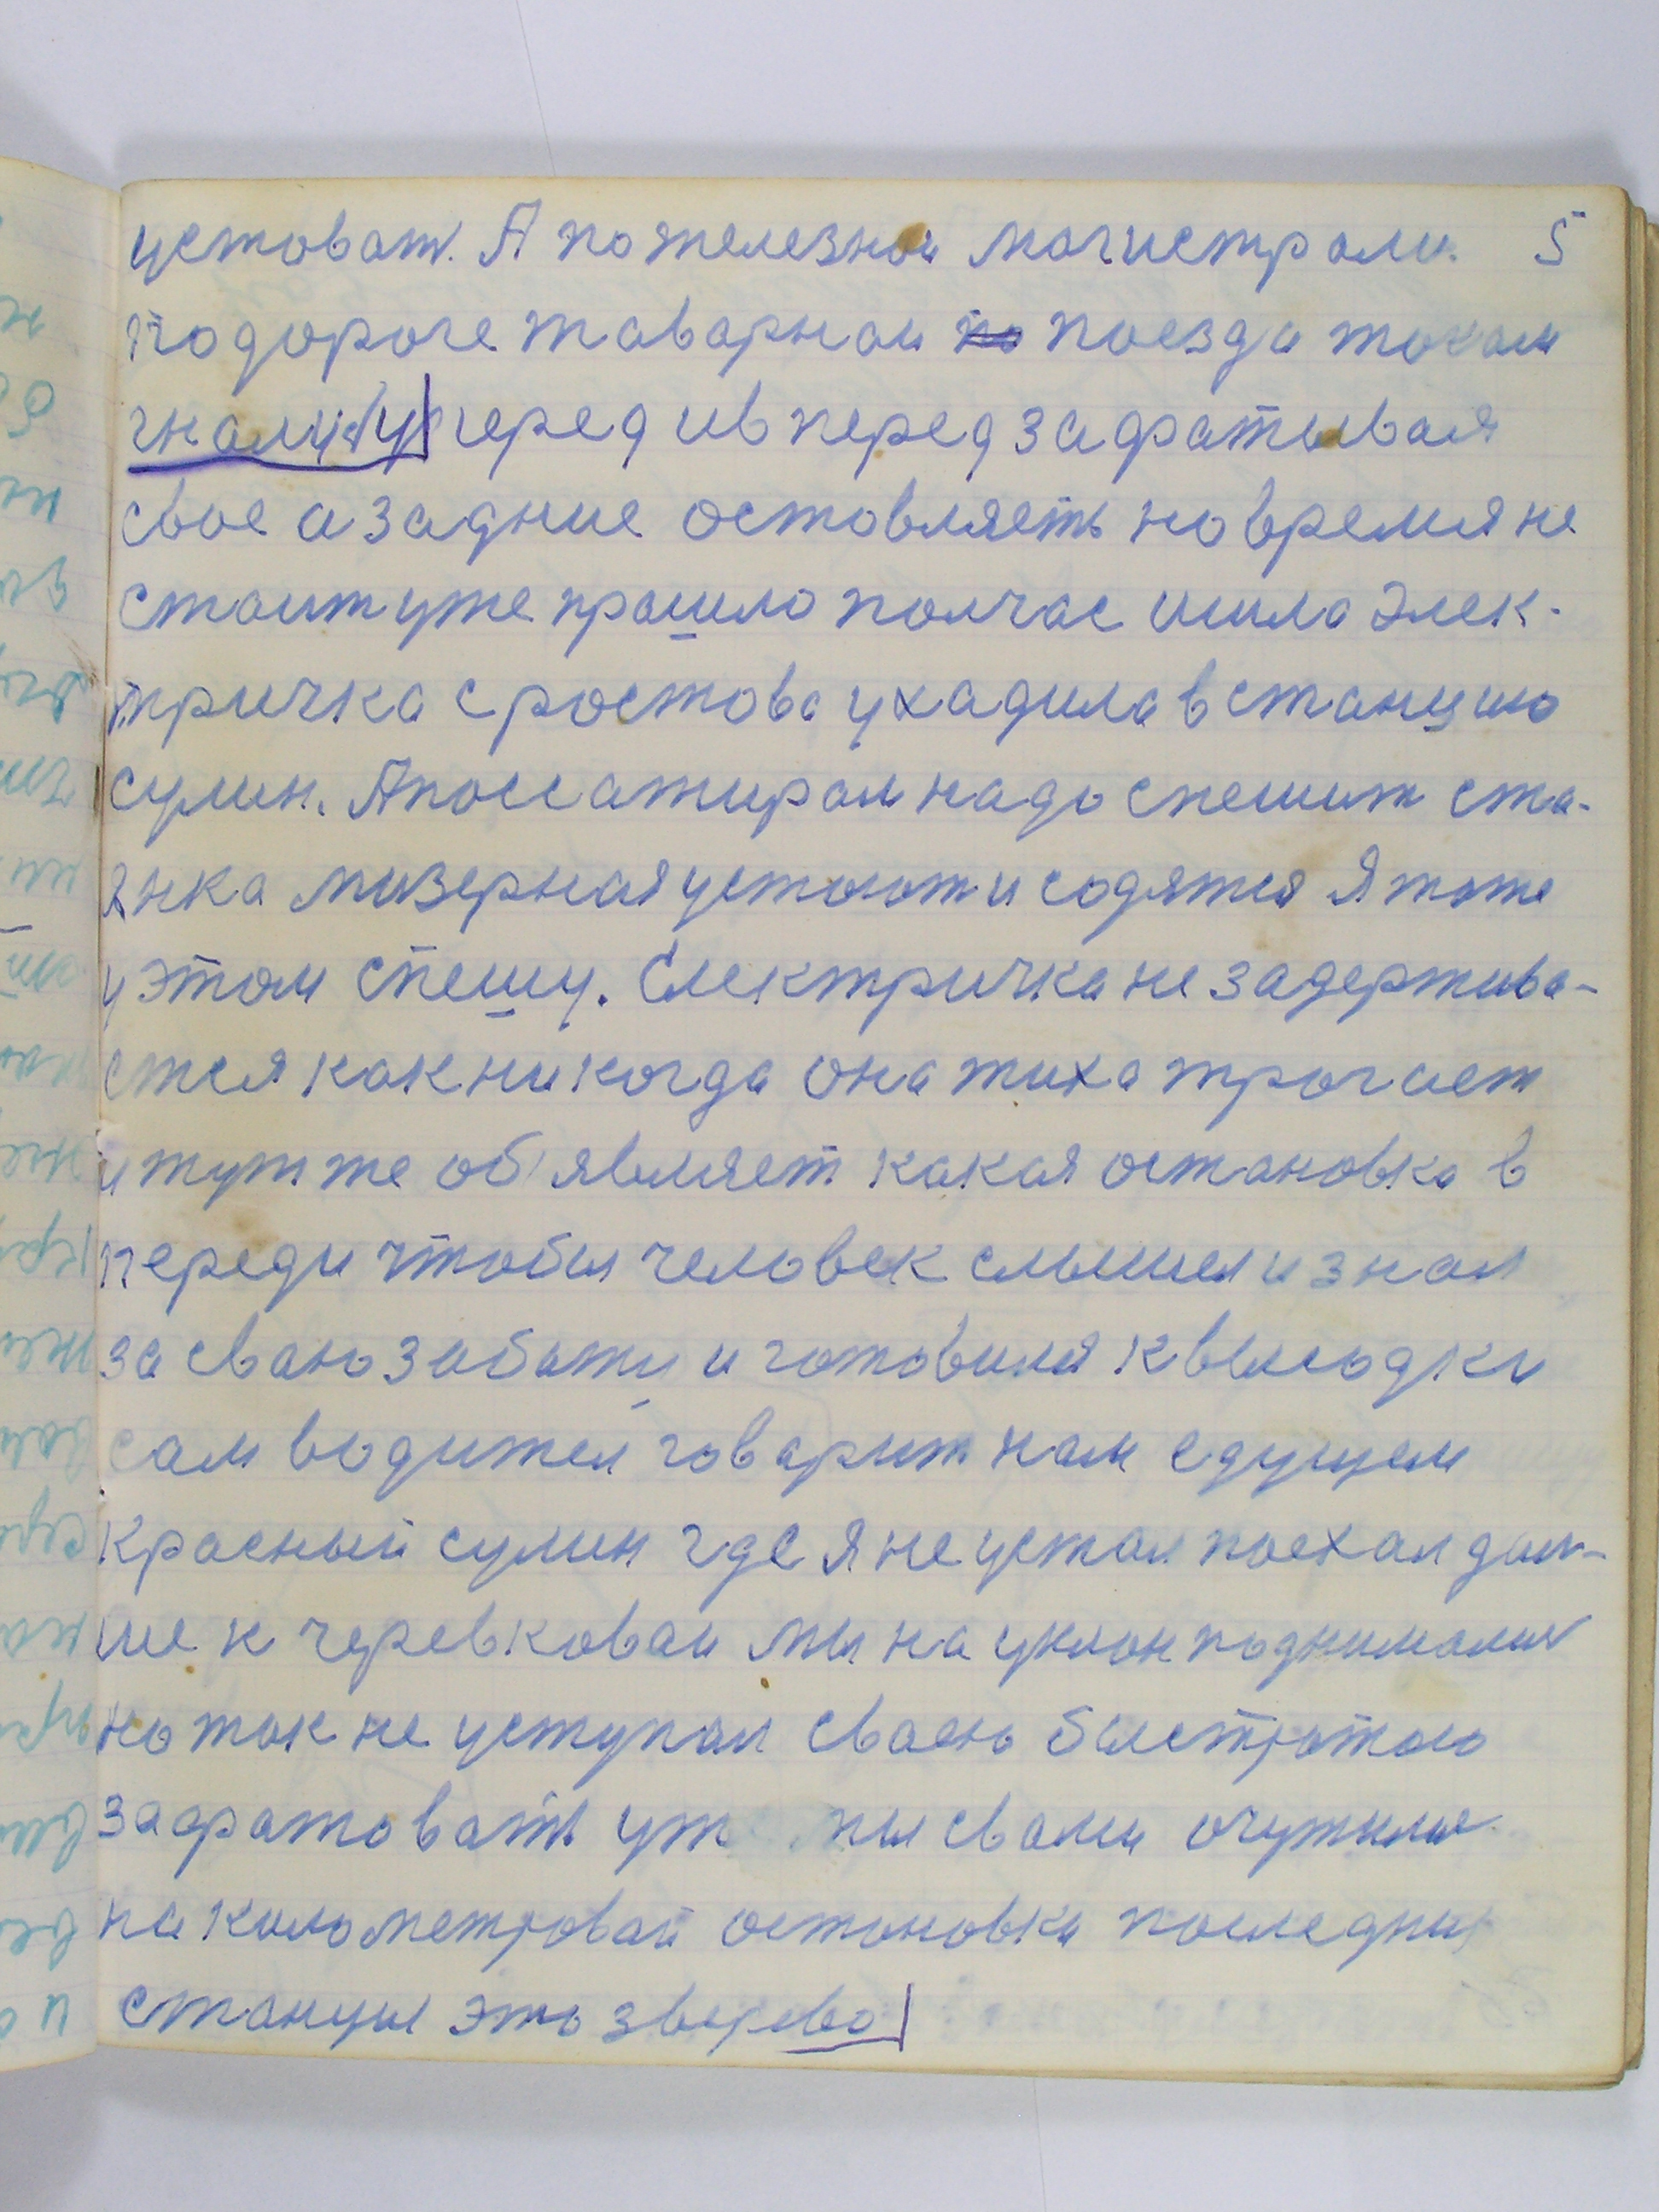 устоват. А по железной могистроли. 5
по дороге товарнои поезда током
гнолис у перед ив перед зафатывая
свое а задние остовляеть но время не
стоит уже прошло полчас ишла элек-
тричка с ростова ухадила в станцию
сулин. А поссатирам надо спешит ста-
янка мизерная устоют и содятся Я тоже
у этом спешу. Електричка не задержива-
ется как никогда она тиха трогает
и тут же об'являет какая остановка в
переди чтобы человек слышел и знал
за сваю забату и готовился к высодки
сам водител говарит нам едущем
Красный сулин где я не устал поехал дал-
ше к черевковаи мы на уклон поднимались
но ток не уступал сваею быстротою
зафатовать уже мы свами очутились
на километровай остоновки последния
станцыя это зверево